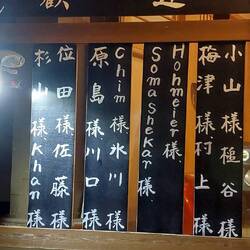 歓迎
小山様 槌谷様
梅津様 村上様
Hohmeier様
Soma Shekar様
Chim様 氷川様
原島様 川口様
位田様 佐藤様
杉山様 Khan様